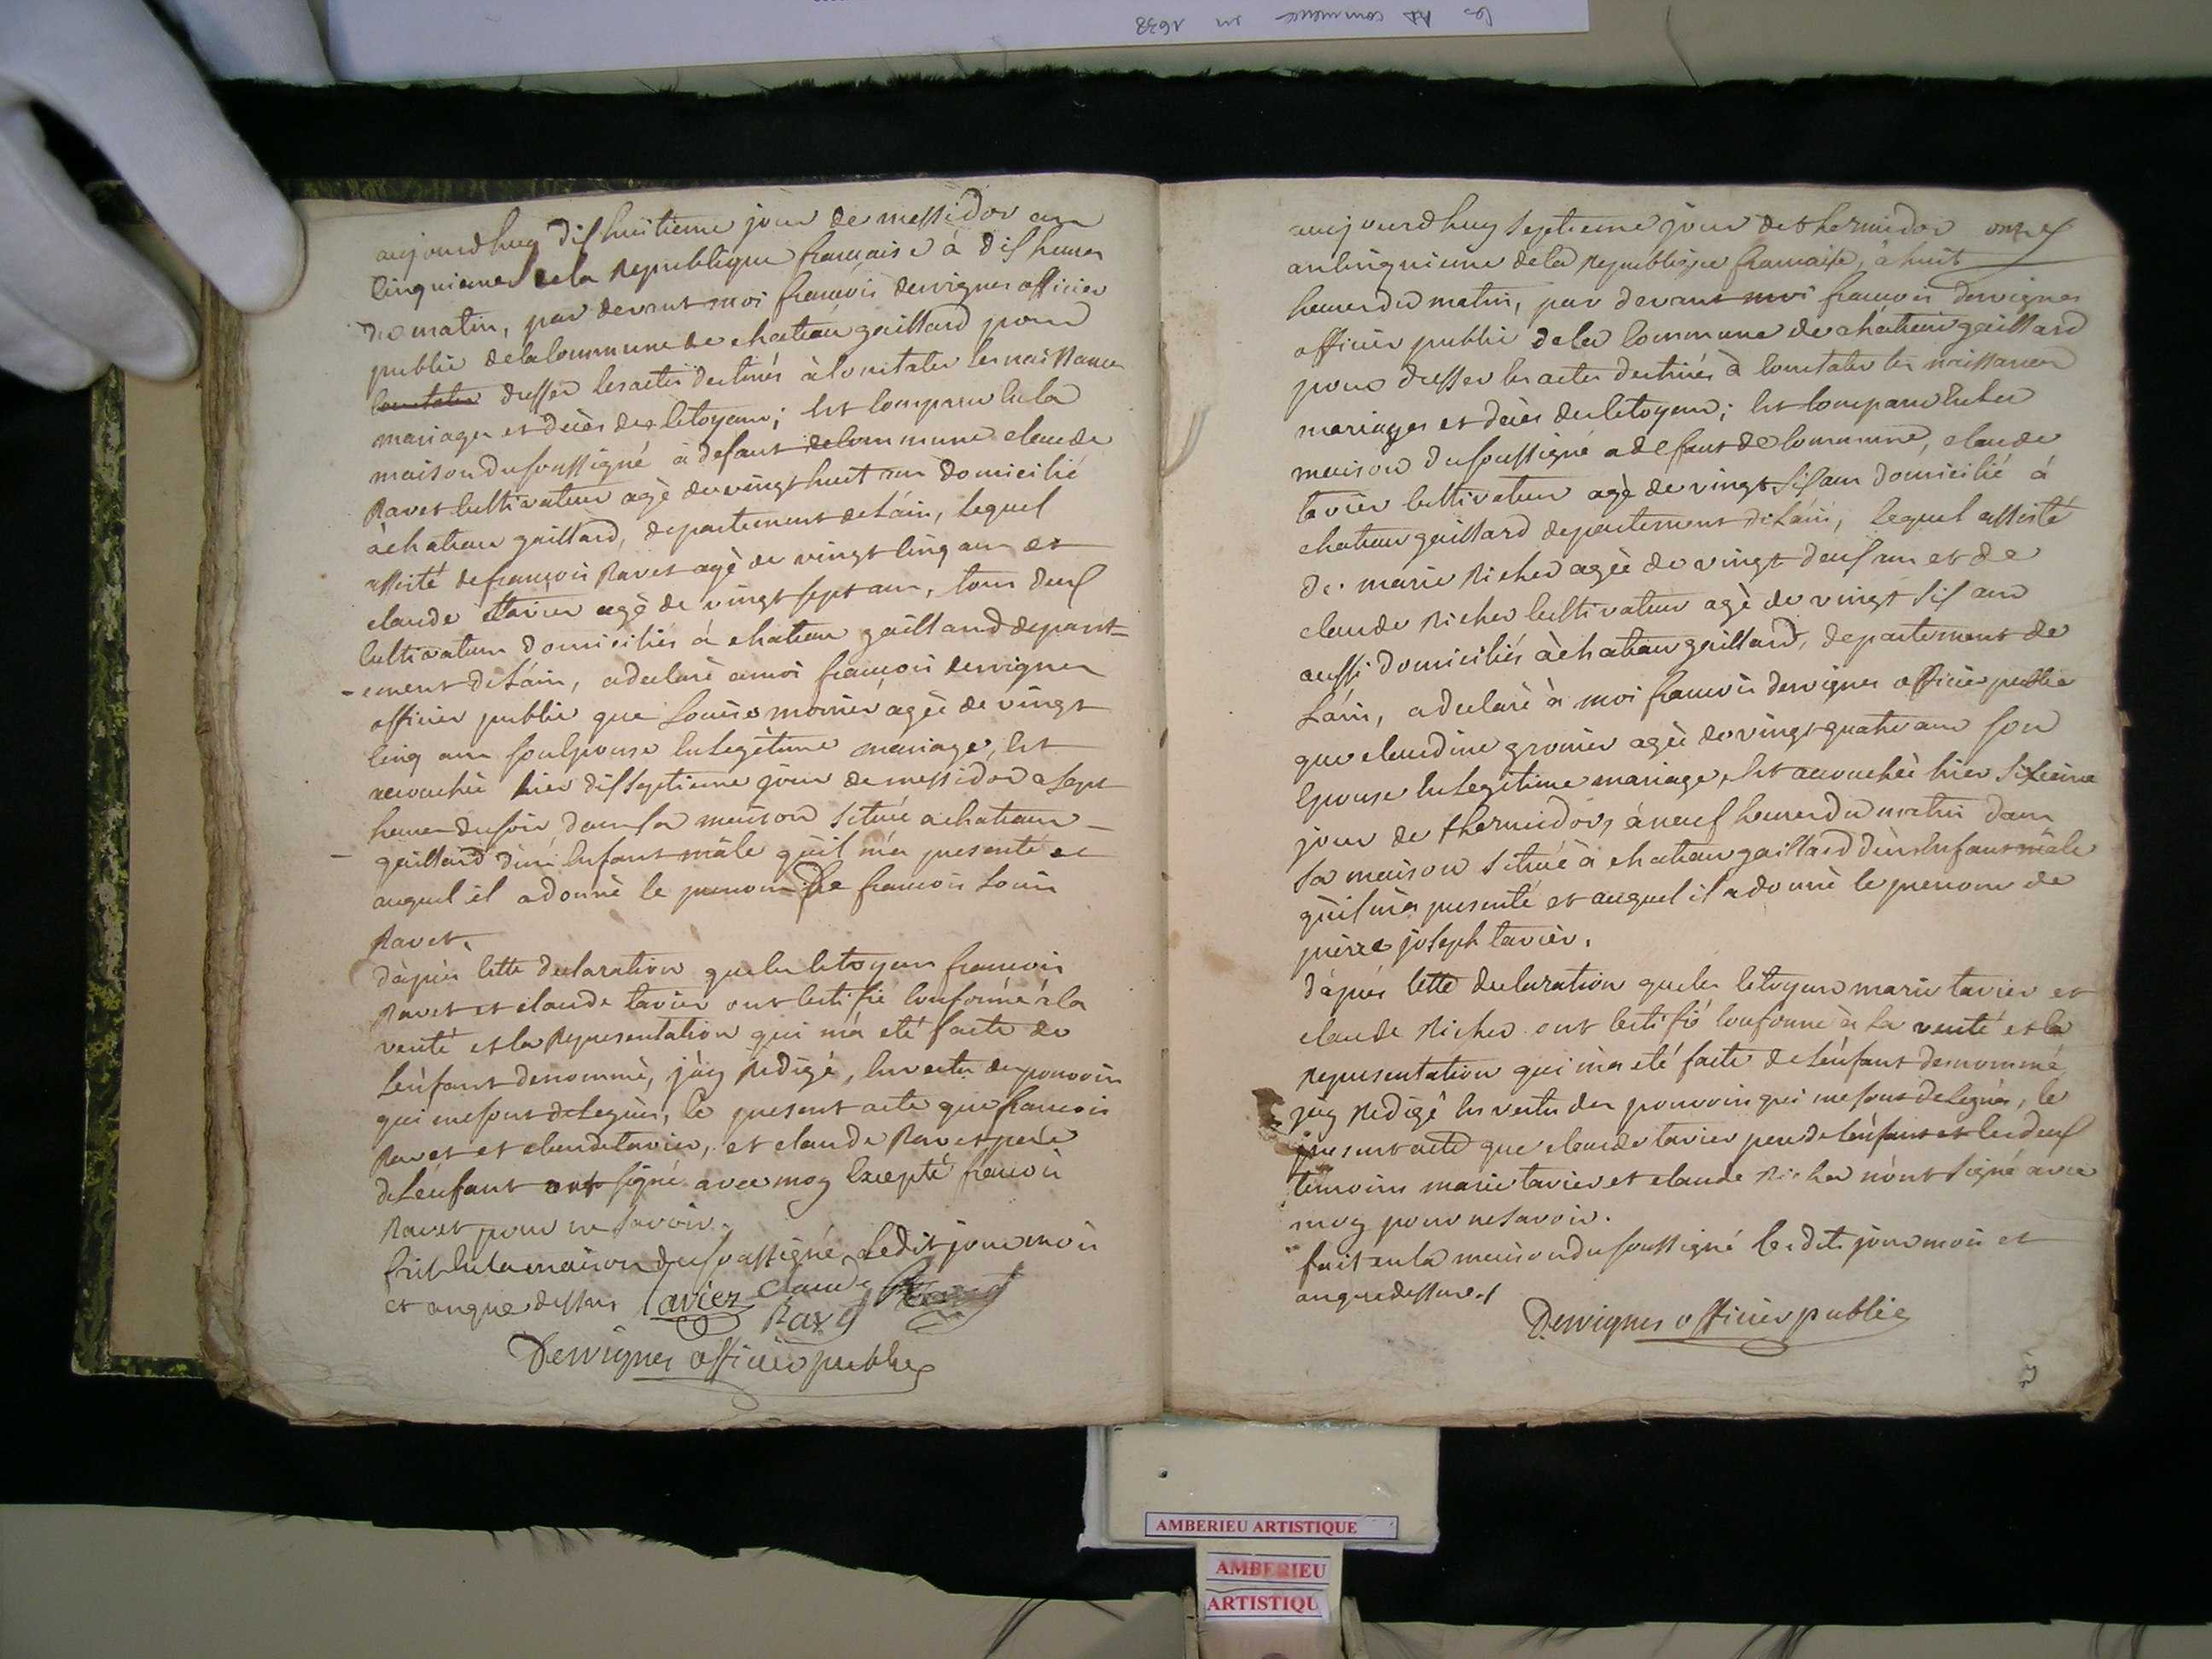 les Ad commence en 1638
aujourdhuy dishuitieme jour de messidor an
cinquieme de la Republique francaise à dis heures
du matin, par devant moi francois dervignes officier
public de la commune de chateau gaillard pour
constater dresser les actes destinés à constater les naissances
mariages et décès des citoyens; est comparu en la
maison du soussigné à defaut de commune claude
Ravet cultivateur agè de vingt huit ans domicilié
à chateau gaillard, departement de Láin, lequel
assité de françois Ravet agè de vingt cinq ans et
claude tavier agè de vingt sept ans, tous deux
cultivateurs domiciliés à chateau gaillard depart-
-ement de Láin, a declaré a moi francois dervignes
officier public que Louise monier agèe de vingt
cinq ans son epouse en legitime mariage, est
accouchée hier disseptieme jour de messidor a sept
heures du soir dans sa maison située a chateau-
-gaillard d'un enfant mâle qùil mà presenté et
auquel il a donné le prenom de francois Louis
Ravet.
d'àprès cette declaration que les citoyens francois
Ravet et claude tavier ont certifié conforme à la
verité et la Representation qui mà eté faite de
Lènfant denommé, jày Redigé, en vertu des pouvoirs
qui me sont delegués, le present acte que francois
Ravet et claude tavier, et claude Ravet pere
de Lénfant ont signé avec moy excepté francois
Ravet pour ne savoir.
fait en la maison du soussigné Ledit jour mois
et an que dessus tavier claude
Ravet
Dervignes officier public
aujourdhuy septieme jour de thermidor
an cinquieme de la Republique francaise, à huit
heures du matin, par devant moi francois dervignes
officier public de la commune de chateau gaillard
pour dresser les actes destinés à constater les naissances
mariages et décès des citoyens; est comparu en la
maison du soussigné a defaut de commune, claude
tavier cultivateur agè de vingt six ans domicilié à
chateau gaillard departement de Láin, lequel assisté
de marie Richer agèe de vingt deux ans et de
claude Richer cultivateur agè de vingt six ans
aussi domiciliés à chateau gaillard, departement de
Láin, a declaré à moi francois dervignes officier public
que claudine gronier agèe de vingt quatre ans son
epouse en legitime mariage, est accouchée hier sixieme
jour de thermidor, à neuf heures du matin dans
sa maison située à chateau gaillard dùn enfant mâle
qùil mà presenté et auquel il a donné le prenom de
pierre joseph tavier.
d'àprès cette declaration que les citoyens marie tavier et
claude Richer ont certifié conforme à la verité et la
representation qui mà eté faite de Lénfant denommé
jày Redigé en vertu des pouvoirs qui me sont delegués, le
present acte que claude tavier pere de lènfant et les deux
temoins marie tavier et claude Richer nònt signé avec
moy pour ne savoir.
fait en la maison du soussigné lesdits jour mois et
an que dessus./
Dervignes officier public
AMBERIEU ARTISTIQUE
AMBERIEU
ARTISTIQU